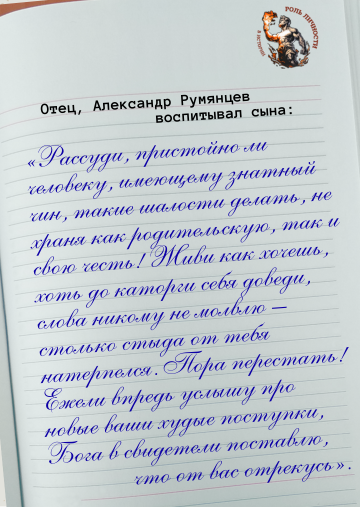 РОЛЬ ЛИЧНОСТИ
Отец, Александр Румянцев
воспитывал сына:
«Рассуди, пристойно ли
человеку, имеющему знатный
чин, такие шалости делать, не
храня как родительскую, так и
свою честь! Живи как хочешь,
хоть до каторги себя доведи,
слова никому не молвлю –
столько стыда от тебя
натерпелся. Пора перестать!
Ежели впредь услышу про
новые ваши худые поступки,
Бога в свидетели поставлю,
что от вас отрекусь».